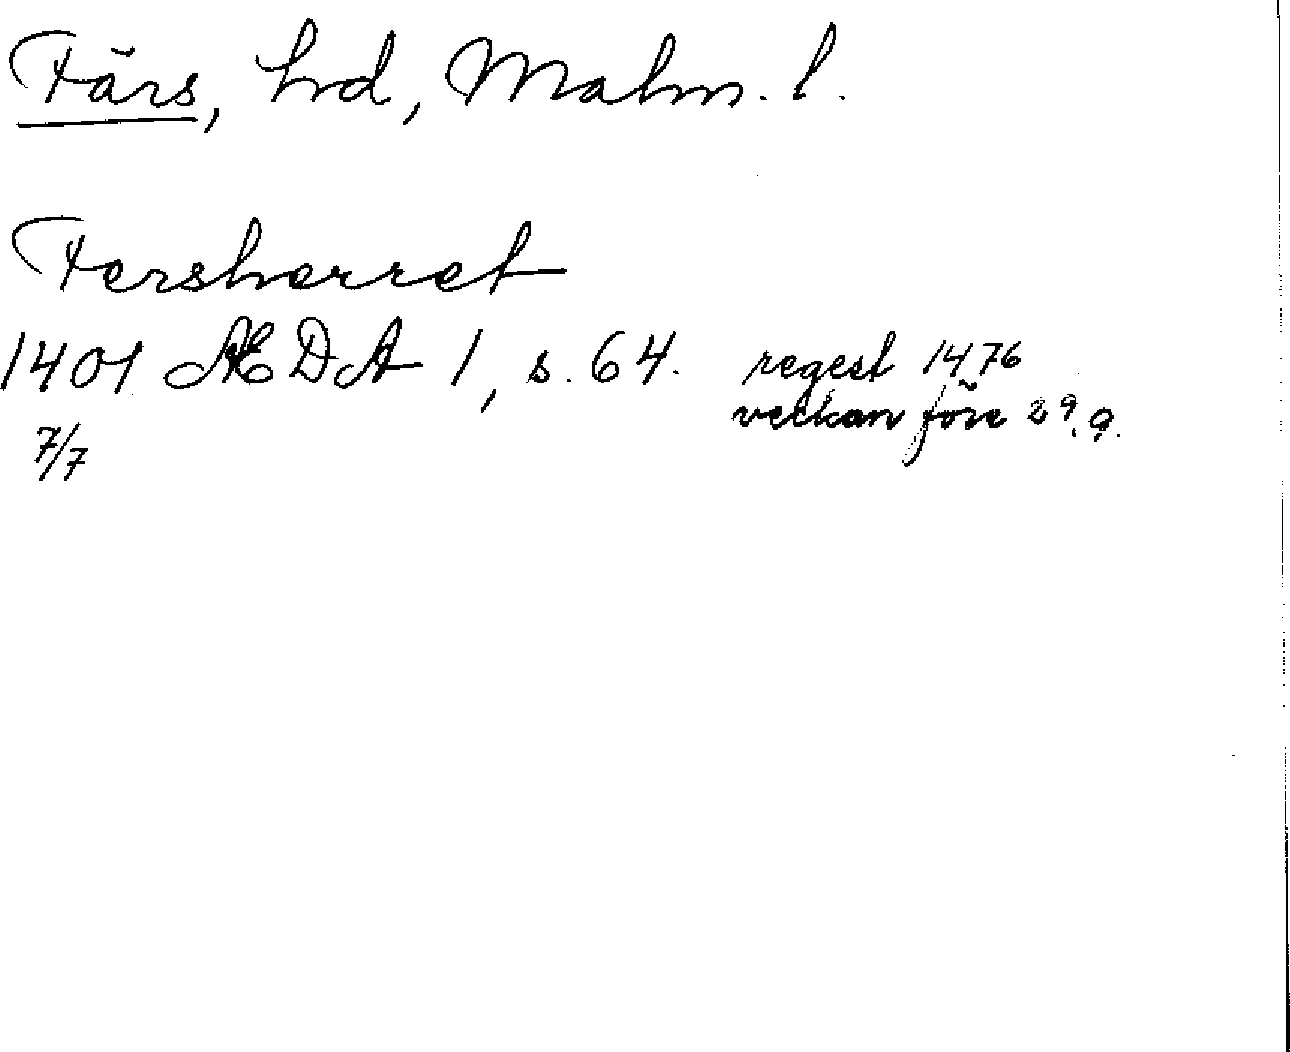 Färs, hd, Malm. l.
Fersherret
1401 ÆDA 1, s. 64. regest 1476
7/7 veckan före 29.9.